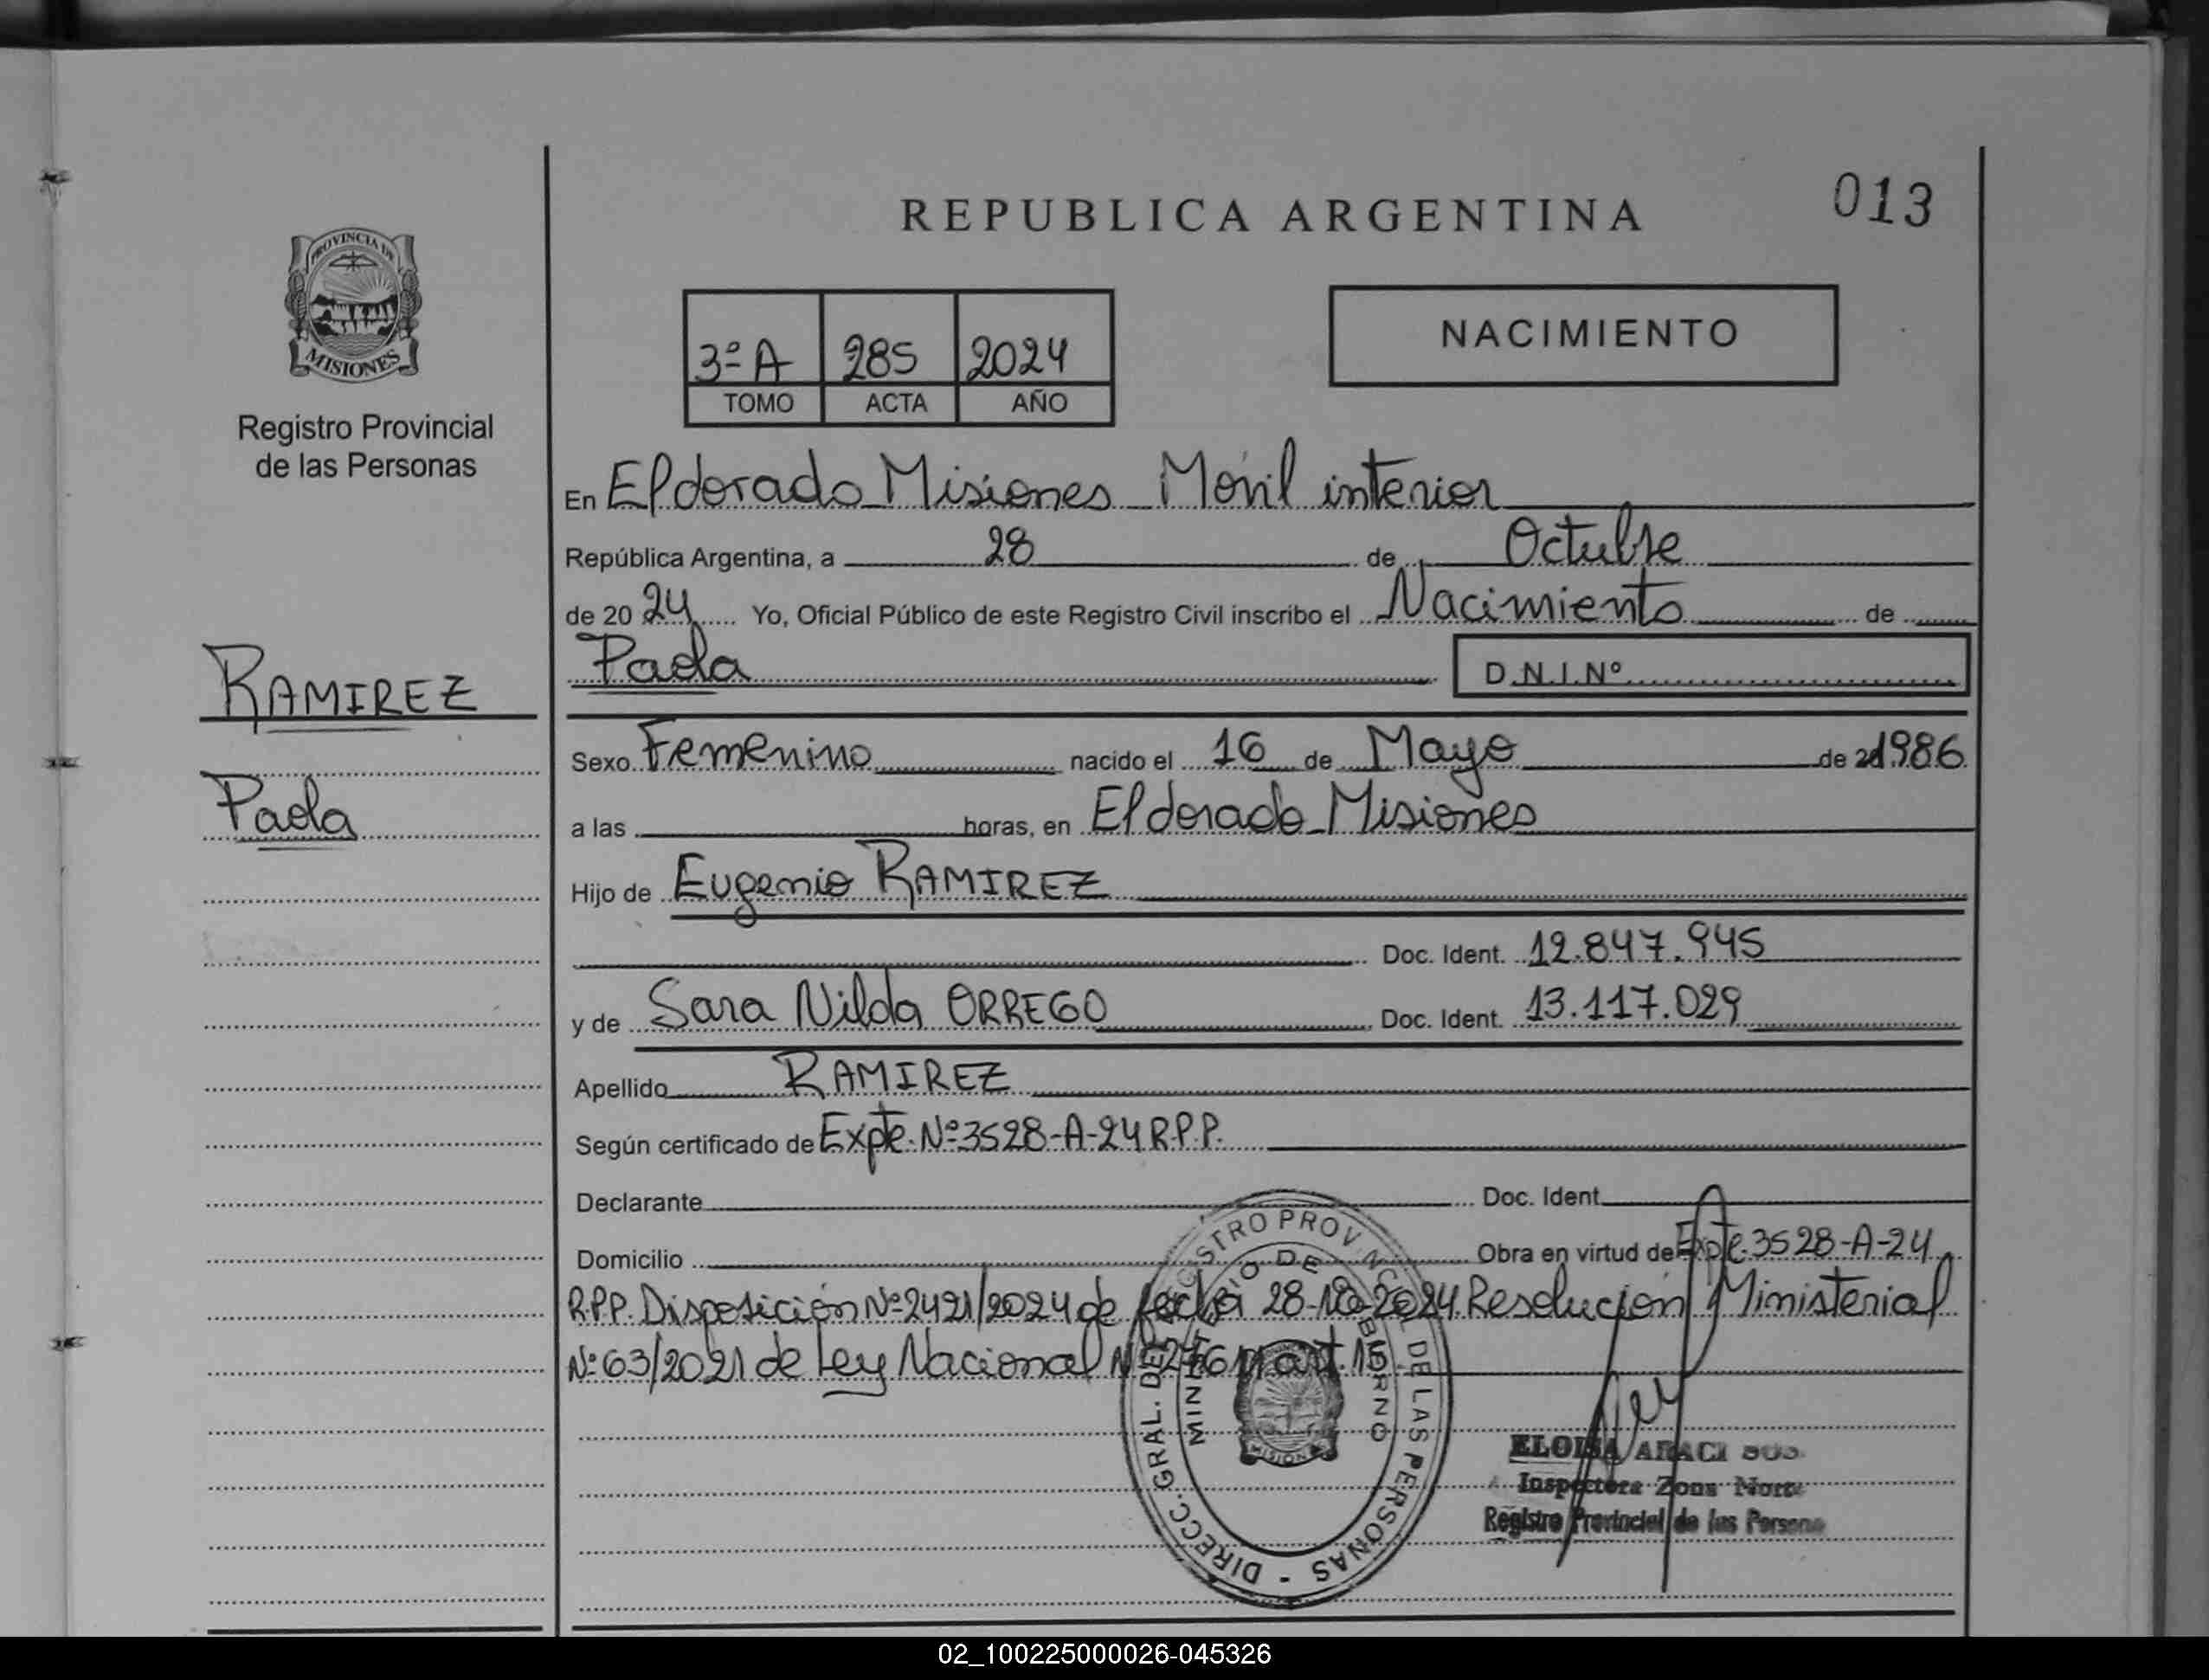 REPUBLICA ARGENTINA
013
PROVINCIA DE
MISIONES
Registro Provincial
de las Personas
3º A 285 2024
TOMO ACTA AÑO
NACIMIENTO
En Eldorado Misiones Móvil interior
República Argentina, a 28 de Octubre
de 20 24 Yo, Oficial Público de este Registro Civil inscribo el Nacimiento de
RAMIREZ
Paola
D.N.I.Nº
Sexo Femenino nacido el 16 de Mayo de 1986
Paola
a las horas, en Eldorado Misiones
Hijo de Eugenio RAMIREZ
Doc. Ident. 12.847.945
y de Sara Nilda ORREGO Doc. Ident. 13.117.029
Apellido RAMIREZ
Según certificado de Expte. Nº 3528-A-24 R.P.P.
Declarante Doc. Ident.
Domicilio Obra en virtud de Expte. 3528-A-24
R.P.P. Disposición Nº 2421/2024 de fecha 28-10-2024 Resolución Ministerial
Nº 63/2021 de Ley Nacional art. 15
DIRECC. GRAL. DEL REGISTRO PROVINCIAL DE LAS PERSONAS -
MINISTERIO DE GOBIERNO
MISIONES
ELOISA ARACI
Inspectora Zona Norte
Registro Provincial de las Personas
02_100225000026-045326